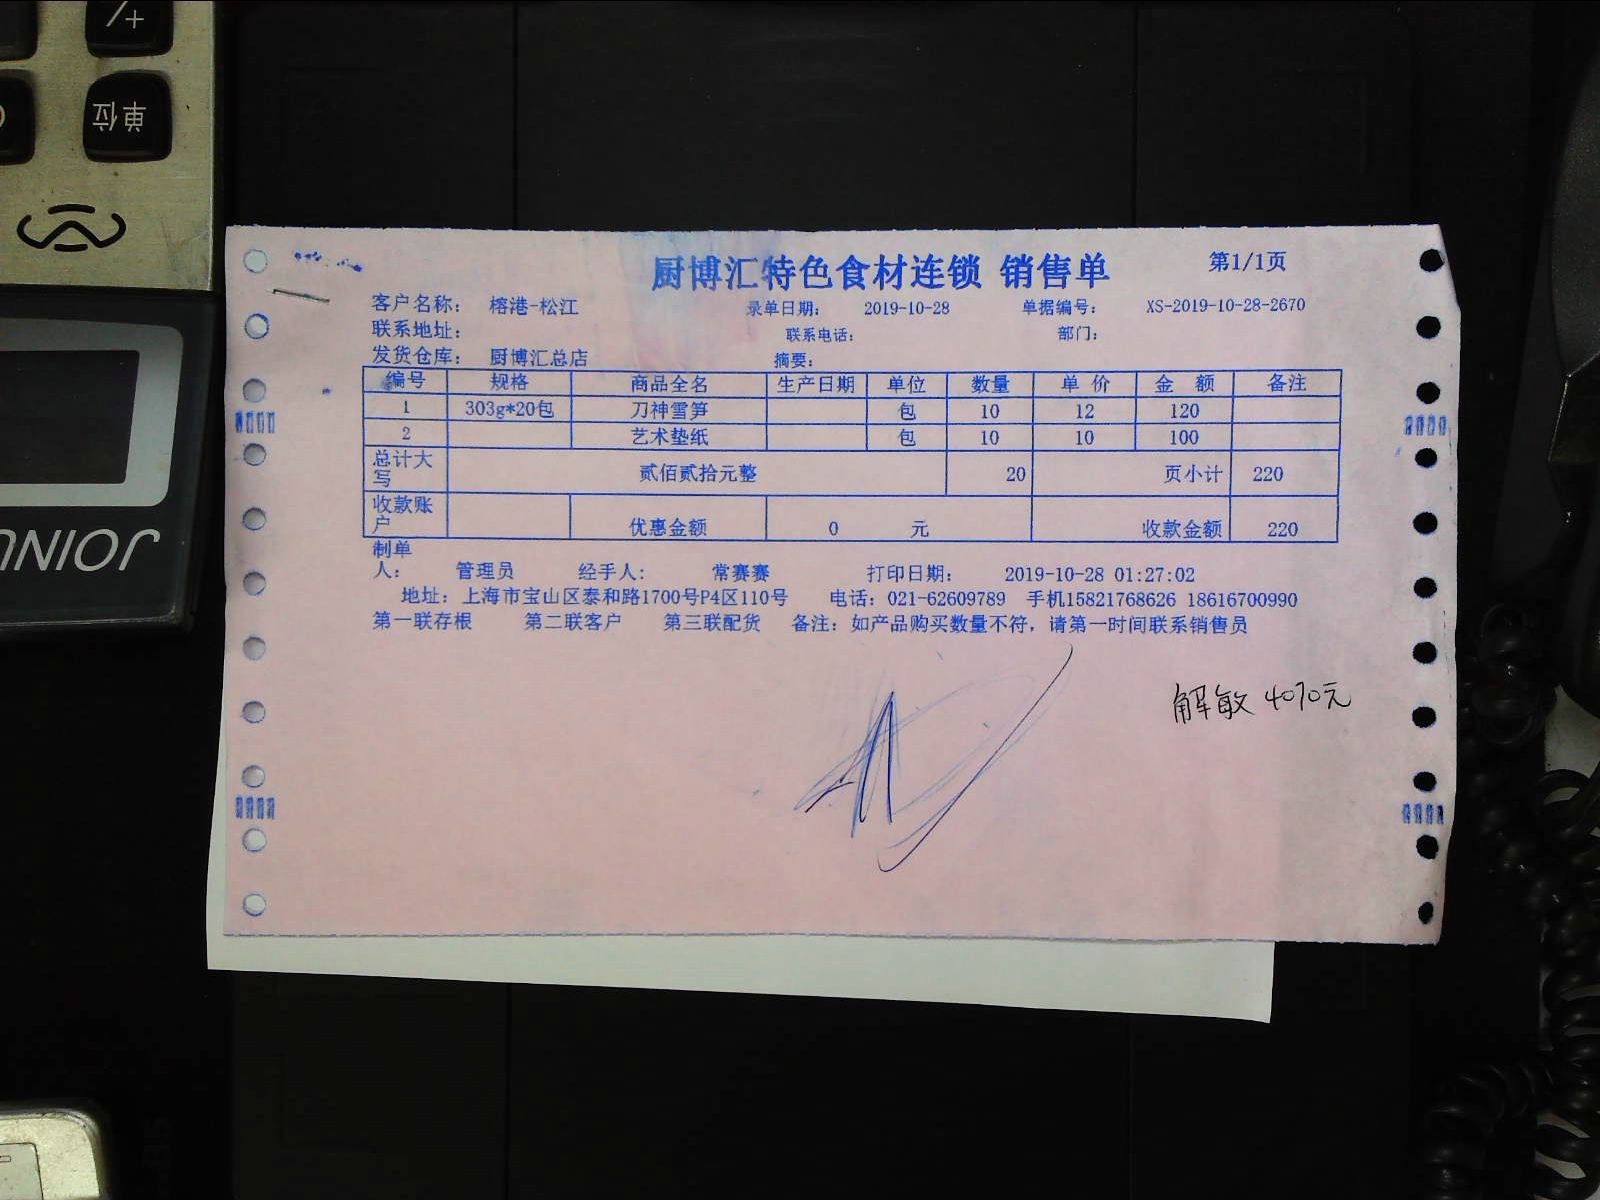 %/+
单位
JOINU
厨博汇特色食材连锁 销售单 第1/1页
客户名称: 榕港-松江 录单日期: 2019-10-28 单据编号: XS-2019-10-28-2670
联系地址: 联系电话: 部门:
发货仓库: 厨博汇总店 摘要:
编号 规格 商品全名 生产日期 单位 数量 单价 金额 备注
1 303g*20包 刀神雪笋 包 10 12 120
2 艺术垫纸 包 10 10 100
总计大写 贰佰贰拾元整 20 页小计 220
收款账户 优惠金额 0 元 收款金额 220
制单人: 管理员 经手人: 常赛赛 打印日期: 2019-10-28 01:27:02
地址: 上海市宝山区泰和路1700号P4区110号 电话: 021-62609789 手机15821768626 18616700990
第一联存根 第二联客户 第三联配货 备注: 如产品购买数量不符, 请第一时间联系销售员
解敏 4070元